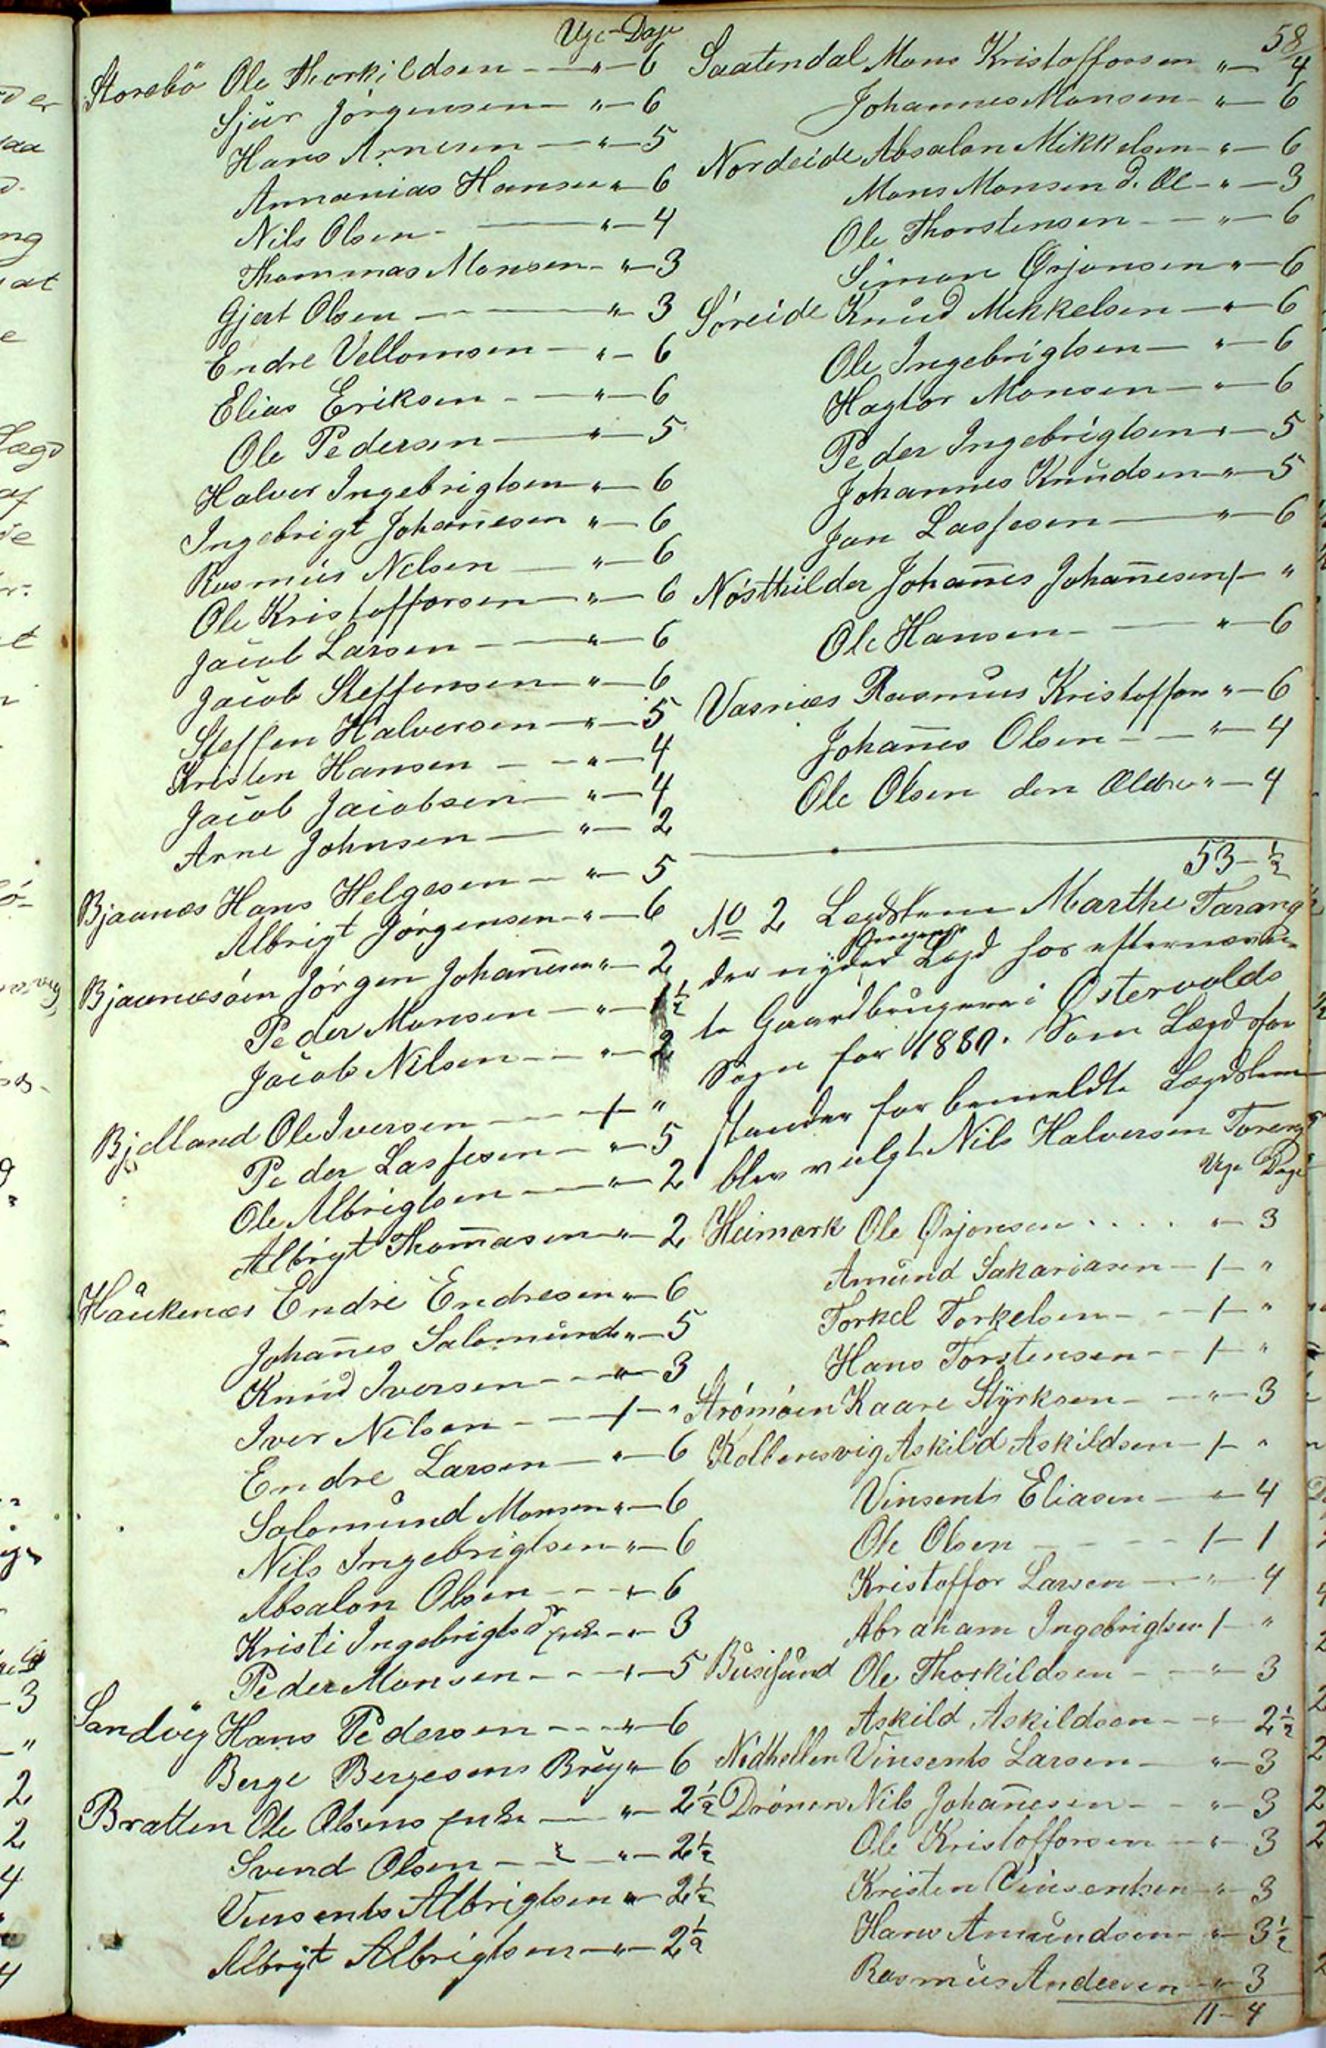 58
Uge - Dage
Storebö Ole Thorkildsen — " — 6
Sjur Jörgensen — " — 6
Hans Arnesen — " — 5
Annanias Hansen " — 6
Nils Olsen — " — 4
Thommas Monsen — " — 3
Gjert Olsen — " — 3
Endre Vellomsen — " — 6
Elias Eriksen — " — 6
Ole Pedersen — " — 5
Halver Ingebrigtsen " — 6
Ingebrigt Johañesen " — 6
Rasmus Nilsen — " — 6
Ole Kristoffersen — " — 6
Jacob Larsen — " — 6
Jacob Steffensen — " — 6
Steffen Halversen — " — 5
Kristen Hansen — " — 4
Jacob Jacobsen — " — 4
Arne Johnsen — " — 2
Bjaanæs Hans Helgesen — " — 5
Albrigt Jörgensen — " — 6
Bjaanæsöen Jörgen Johañesen " — 2
Peder Monsen — " — 1½
Jacob Nilsen — " — 2
Bjelland Ole Iversen — 1 — "
Peder Lassesen — " — 5
Ole Albrigtsen — " — 2
Albrigt Thom̄asen — " — 2
Haukenæs Endre Endresen " — 6
Johañes Salomunds " — 5
Knud Iversen — " — 3
Iver Nilsen — 1 — "
Endre Larsen — " — 6
Salomund Monsen " — 6
Nils Ingebrigtsen " — 6
Absalon Olsen — " — 6
Kristi Ingebrigtsdr enke — " — 3
Peder Monsen — " — 5
Sandvig Hans Pedersen — " — 6
Berge Bergesens Brug " — 6
Bratten Ole Olsens enke — " — 2½
Svend Olsen — " — 2½
Vinsents Albrigtsen " — 2½
Albrigt Albrigtsen — " — 2½
Saatendal Mons Kristoffersen " — 4
Johannes Monsen — " — 6
Nordeide Absalon Mikkelsen — " — 6
Mons Monsen d. Æl — " — 3
Ole Thorstensen — " — 6
Simon Ørjansen — " — 6
Söreide Knud Mikkelsen — " — 6
Ole Ingebrigtsen — " — 6
Hagtor Monsen — " — 6
Peder Ingebrigtsen " — 5
Johannes Knudsen " — 5
Jan Lassesen — " — 6
Nösthilder Johañes Johañesen 1 — "
Ole Hansen — " — 6
Vasnæs Rasmus Kristoffersen " — 6
Johañes Olsen — " — 4
Ole Olsen den Ældre " — 4
53 - ½
No 2 Lægdslem Marthe Tarang
der nyder Lægd hos efternævn-
te Gaardbrugere i Østervolds
Sogn for 1880. Som Lægdsfor
stander for bemeldte Lægdslem
blev valgt Nils Halversen Tarang
Uge Dage
Heimark Ole Ørjansen . . . . " — 3
Amund Sakariasen — 1 — "
Torkel Torkelsen — 1 — "
Hans Torstensen — 1 — "
Strömöen Kaare Styrksen — " — 3
Kolbensvig Askild Askildsen — 1 — "
Vinsents Eliasen — " — 4
Ole Olsen — 1 — 1
Kristoffer Larsen — " — 4
Abraham Ingebrigtsen 1 — "
Busesund Ole Thorkildsen — " — 3
Askild Askildsen — " — 2½
Nidhellen Vinsents Larsen — " — 3
Drönen Nils Johañesen — " — 3
Ole Kristoffersen — " — 3
Kristen Vinsentsen — " — 3
Hans Amundsen — " — 3½
Rasmus Andersen — " — 3
11 - 4